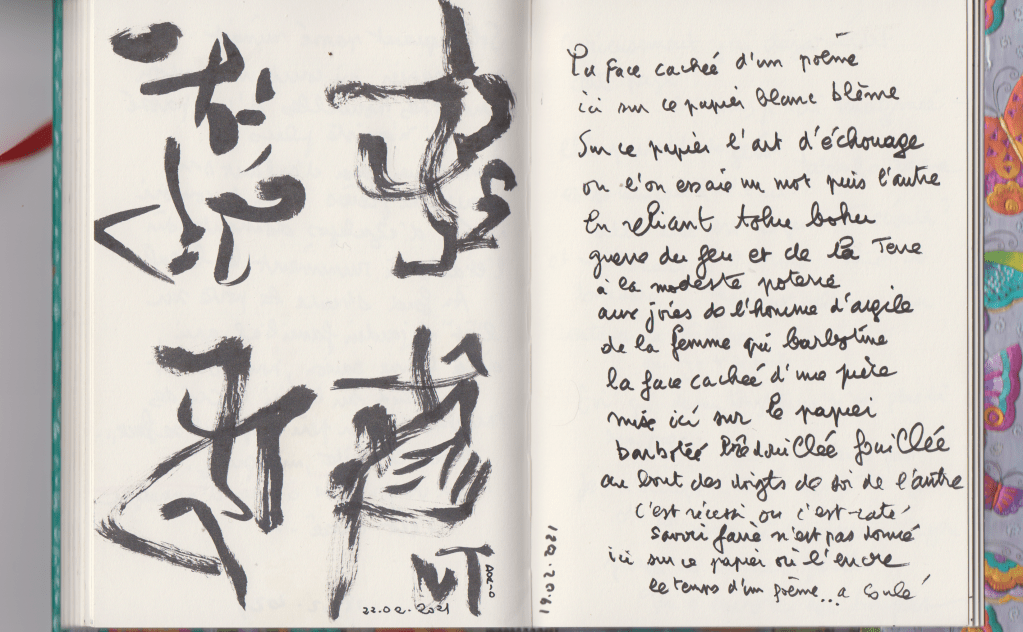 22.02.2021
La face cachée d'un poême
ici sur ce papier blanc blême
Sur ce papier l'art d'échouage
ou l'on essaie un mot puis l'autre
En reliant tohu bohu
guerre du feu et de la Terre
à la modeste poterie
aux joies de l'homme d'argile
de la femme qui barbotine
la face cachée d'une
mise ici sur le papier
barbotée fouillée
au bout des doigts de soi de l'autre
c'est réussi ou c'est raté
savoir faire n'est pas donné
ici sur ce papier où l'encre
le temps d'un poême... a coulé
19.02.2021